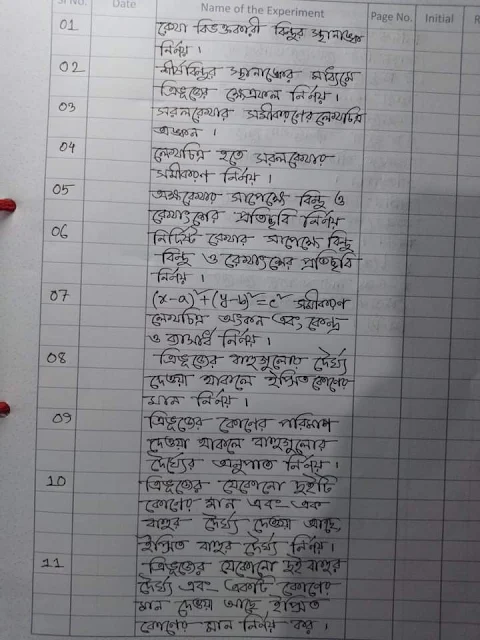 Sl No. Date Name of the Experiment Page No. Initial R
01 রেখা বিভক্তকারী বিন্দুর স্থানাঙ্ক
নির্নয় ।
02 শীর্ষবিন্দুর স্থানাঙ্কের মাধ্যমে
ত্রিভুজের ক্ষেত্রফল নির্নয় ।
03 সরলরেখার সমীকরণের লেখচিত্র
অঙ্কন ।
04 লেখচিত্র হতে সরলরেখার
সমীকরণ নির্নয় ।
05 অক্ষরেখার সাপেক্ষে বিন্দু ও
রেখাংশের প্রতিচ্ছবি নির্নয়
06 নির্দিষ্ট রেখার সাপেক্ষে বিন্দু
বিন্দু ও রেখাংশের প্রতিচ্ছবি
নির্নয় ।
07 (x-a)²+(y-b)²=c² সমীকরণ
লেখচিত্র অংকন এবং কেন্দ্র
ও ব্যাসার্ধ নির্নয় ।
08 ত্রিভুজের বাহুগুলোর দৈর্ঘ্য
দেওয়া থাকলে ইপ্সিত কোণের
মান নির্নয় ।
09 ত্রিভুজের কোণের পরিমাণ
দেওয়া থাকলে বাহুগুলোর
দৈর্ঘ্যের অনুপাত নির্নয় ।
10 ত্রিভুজের যেকোনো দুইটি
কোণের মান এবং এক
বাহুর দৈর্ঘ্য দেওয়া আছে,
ইপ্সিত বাহুর দৈর্ঘ্য নির্নয় ।
11 ত্রিভুজের যেকোনো দুই বাহুর
দৈর্ঘ্য এবং একটি কোণের
মান দেওয়া আছে ইপ্সিত
কোণের মান নির্নয় কর ।